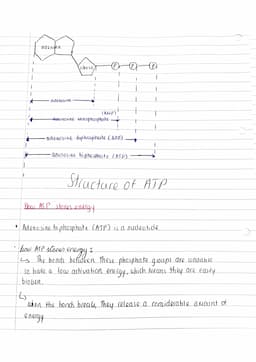 adenine
ribose
P P P
adenosine
(AMP)
adenosine monophosphate
adenosine diphosphate (ADP)
adenosine triphosphate (ATP)
Structure of ATP
How ATP stores energy
• Adenosine triphosphate (ATP) is a nucleotide
• How ATP stores energy :
↳ The bonds between these phosphate groups are unstable
so have a low activation energy, which means they are easily
broken.
↳
when the bonds break, they release a considerable amount of
energy